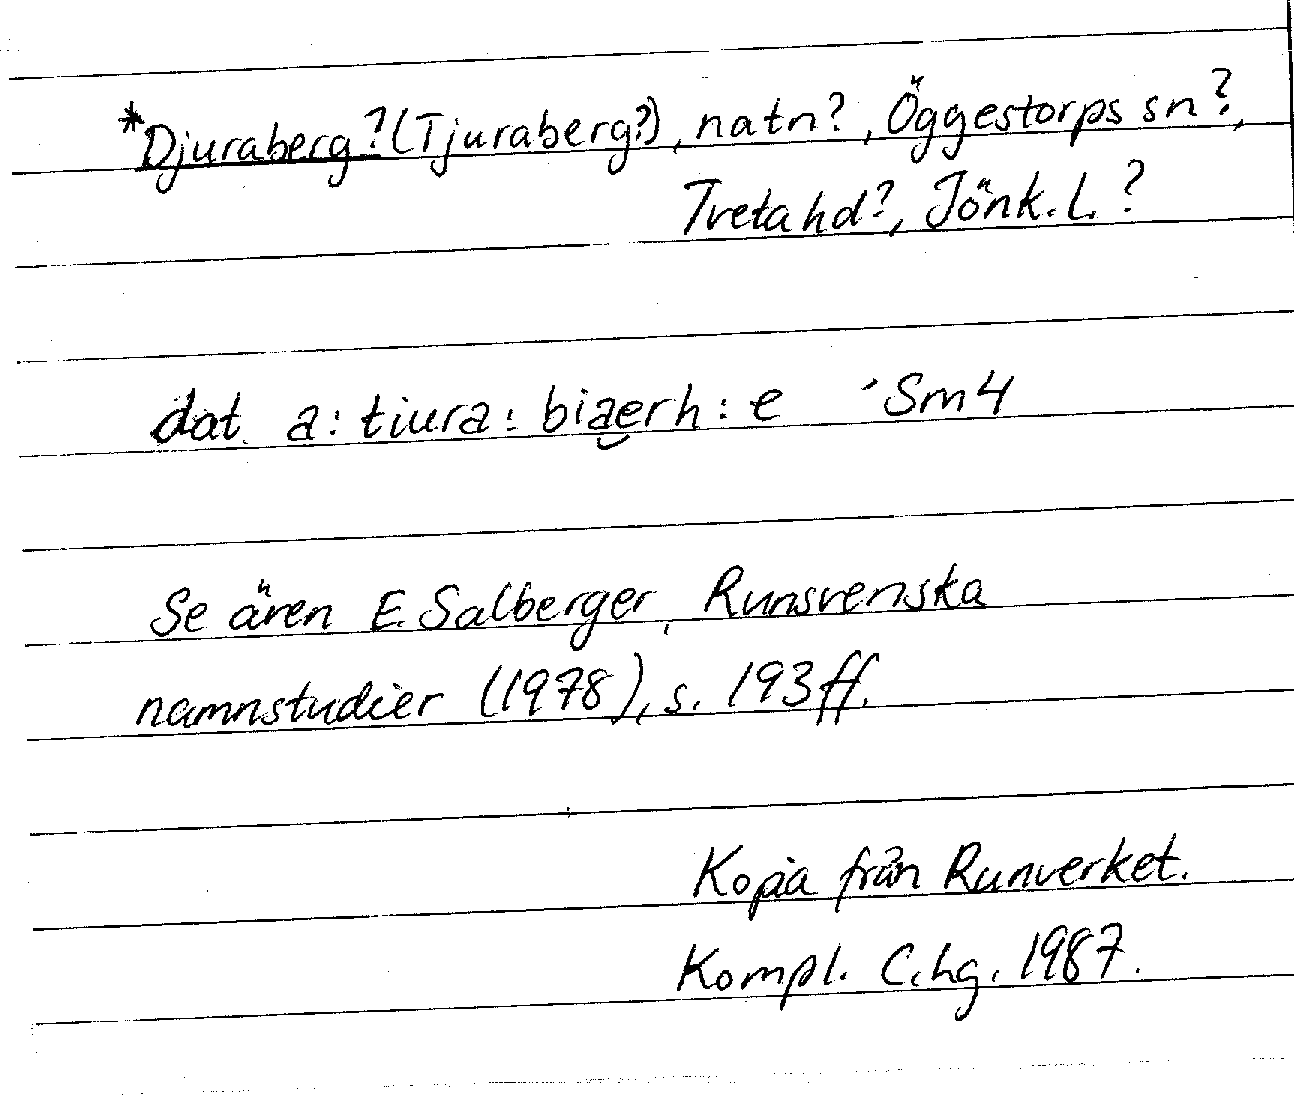 *Djuraberg? (Tjuraberg?), natn?, Öggestorps sn?,
Treta hd?, Jönk. l.?
dat. a : tiura : biaerh : e Sm4
Se även E. Salberger, Runsvenska
namnstudier (1978), s. 193 ff.
Kopia från Runverket.
Kompl. C.hg. 1987.